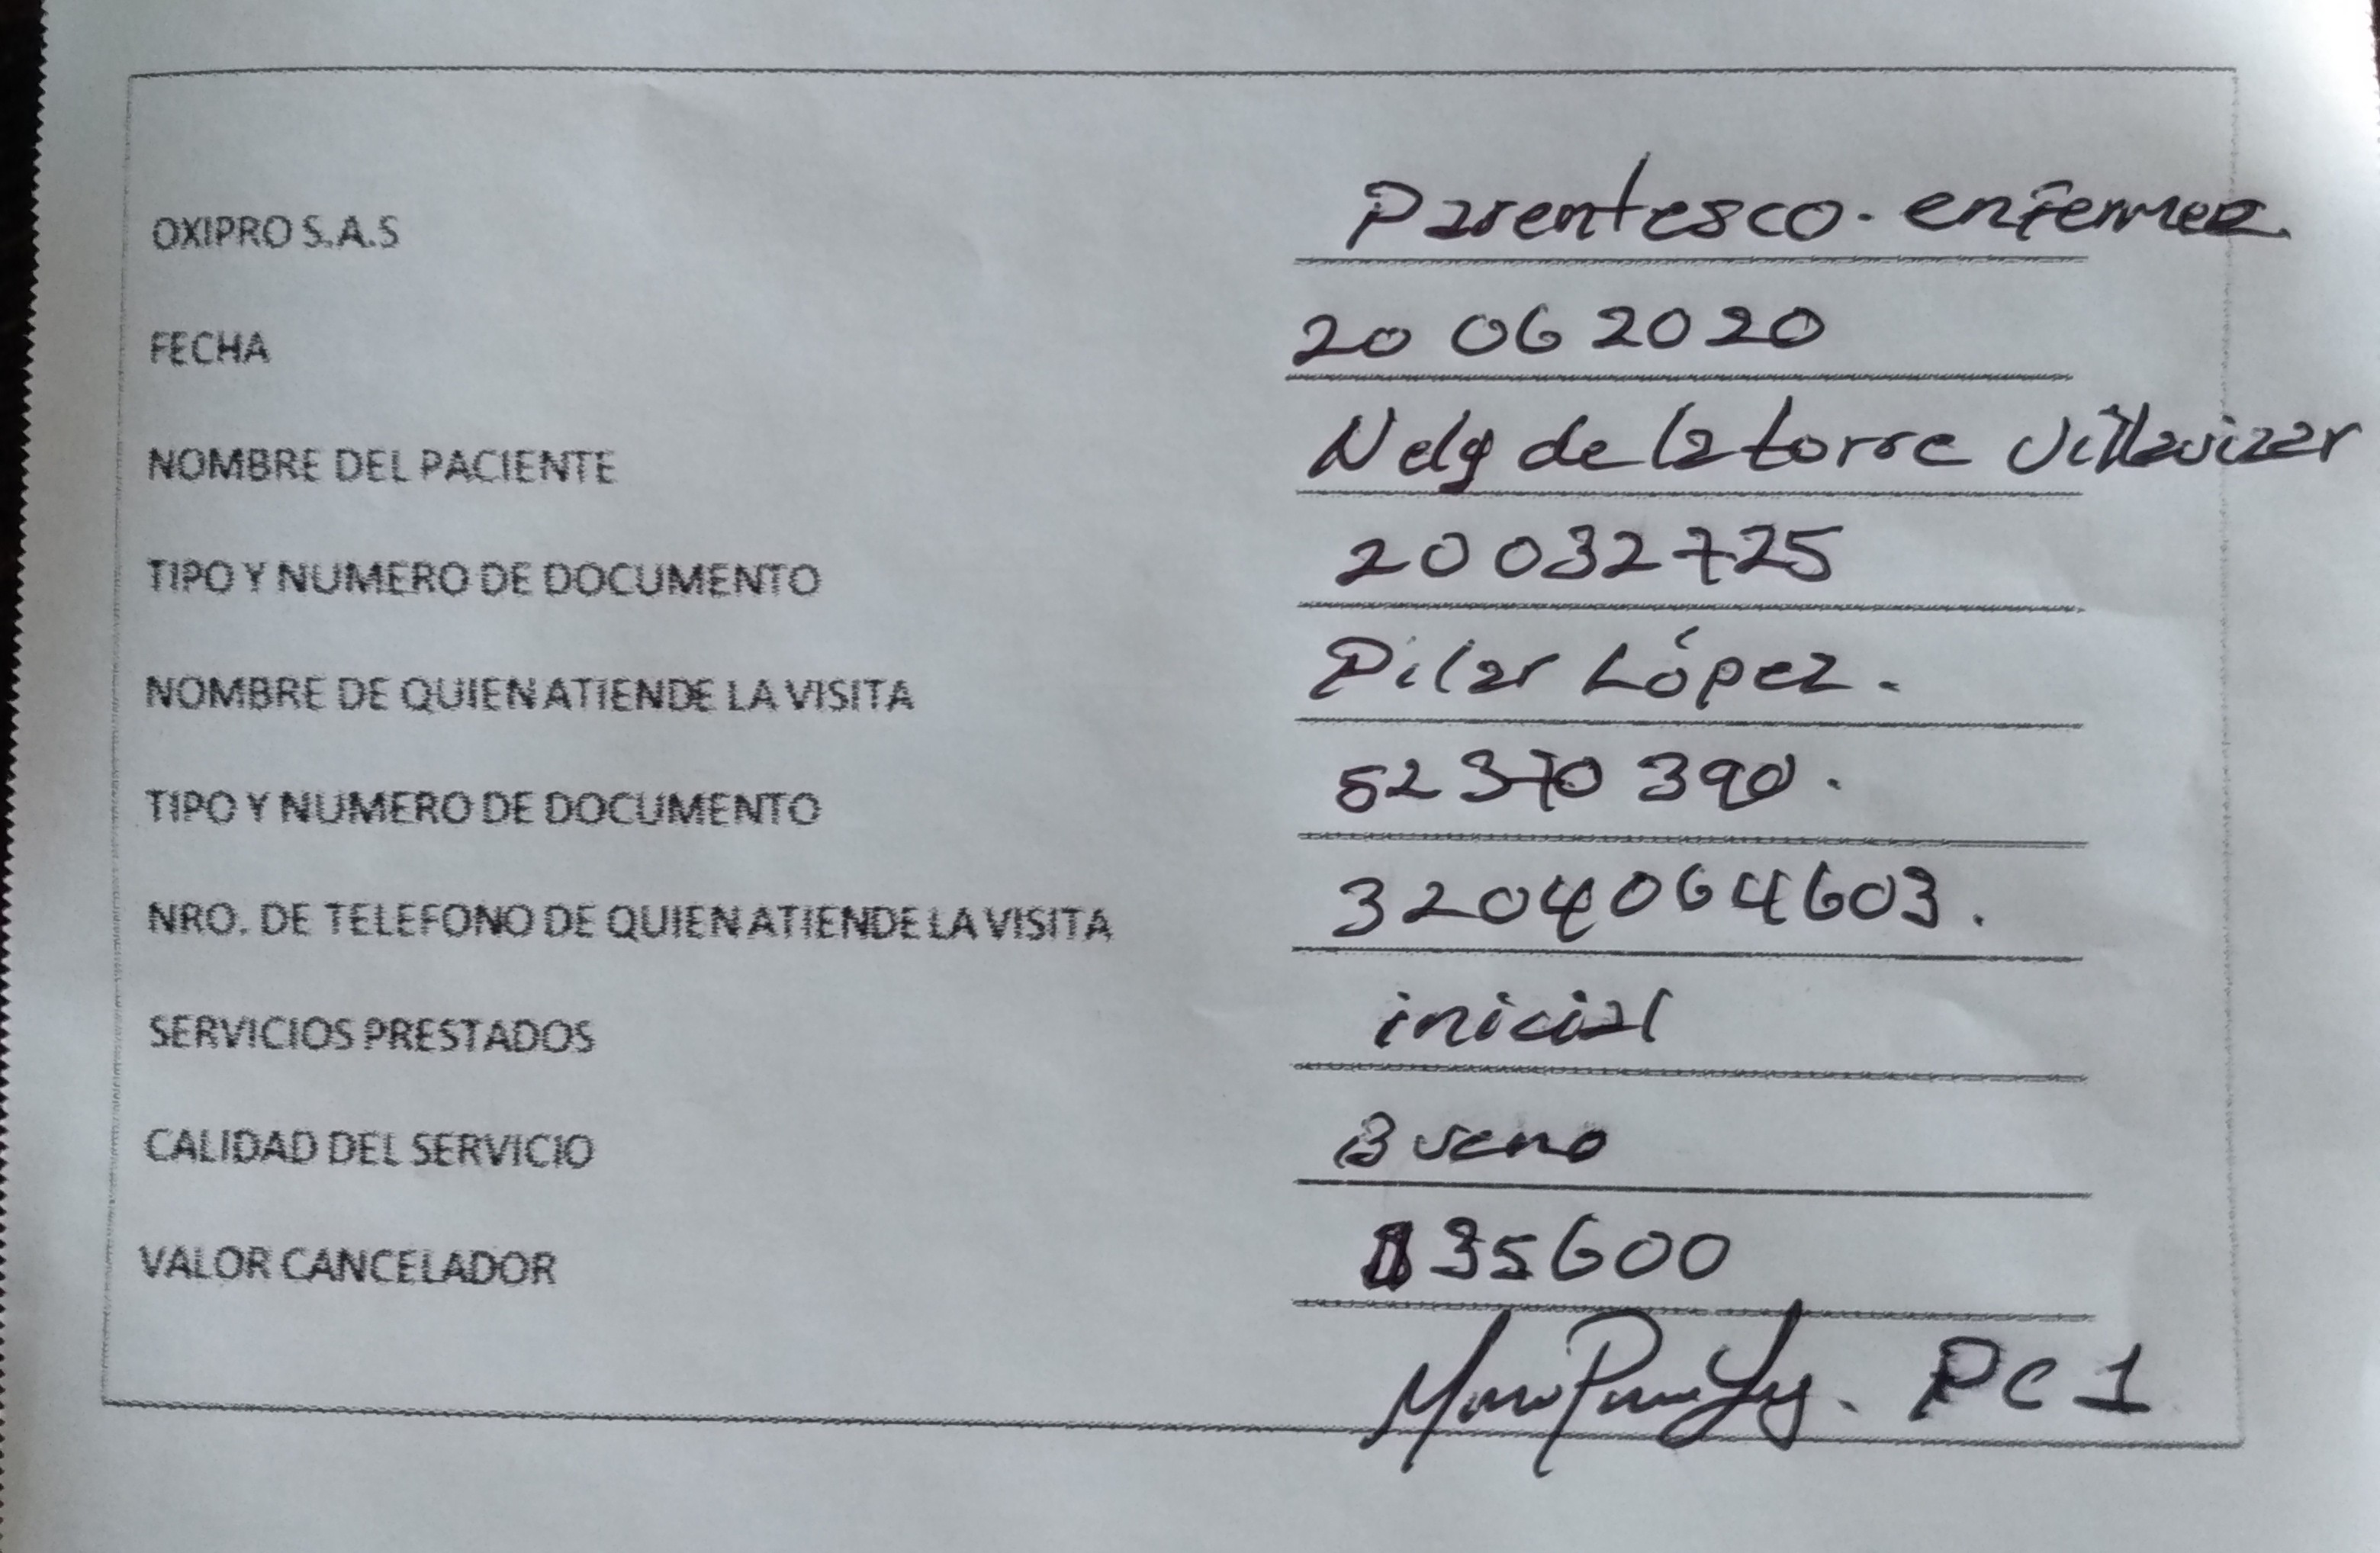 OXIPRO S.A.S Parentesco. enfermera.
FECHA 20 06 2020
NOMBRE DEL PACIENTE Nely de la torre Villavizar
TIPO Y NUMERO DE DOCUMENTO 20032725
NOMBRE DE QUIEN ATIENDE LA VISITA Pilar López.
TIPO Y NUMERO DE DOCUMENTO 52370390.
NRO. DE TELEFONO DE QUIEN ATIENDE LA VISITA 32040064603.
SERVICIOS PRESTADOS inicial
CALIDAD DEL SERVICIO Bueno
VALOR CANCELADOR $35600
PC1